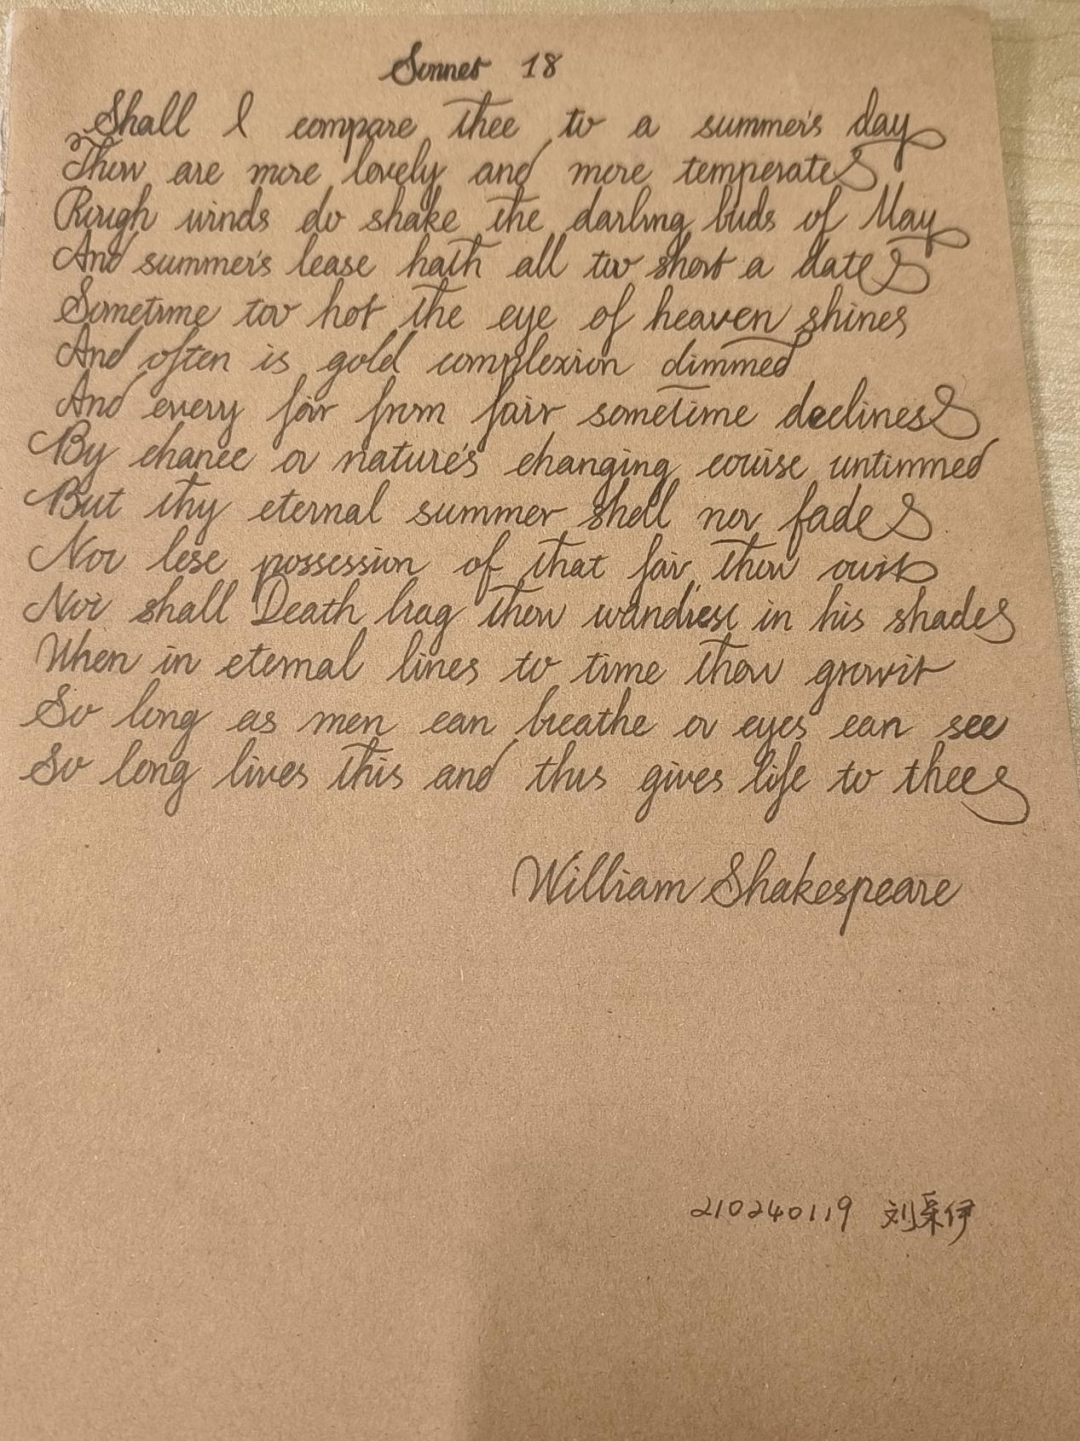 Sonnet 18
Shall I compare thee to a summer's day
Thou are more lovely and more temperate
Rough winds do shake the darling buds of May
And summer's lease hath all too short a date
Sometime too hot the eye of heaven shines
And often is gold complexion dimmed
And every fair from fair sometime declines
By chance or nature's changing course untimmed
But thy eternal summer shell nor fade
Nor lese possession of that fair thou owist
Nor shall Death brag thou wandrest in his shade
When in eternal lines to time thou growit
So long as men can breathe or eyes can see
So long lives this and this gives life to thee
William Shakespeare
210240119 刘采伊